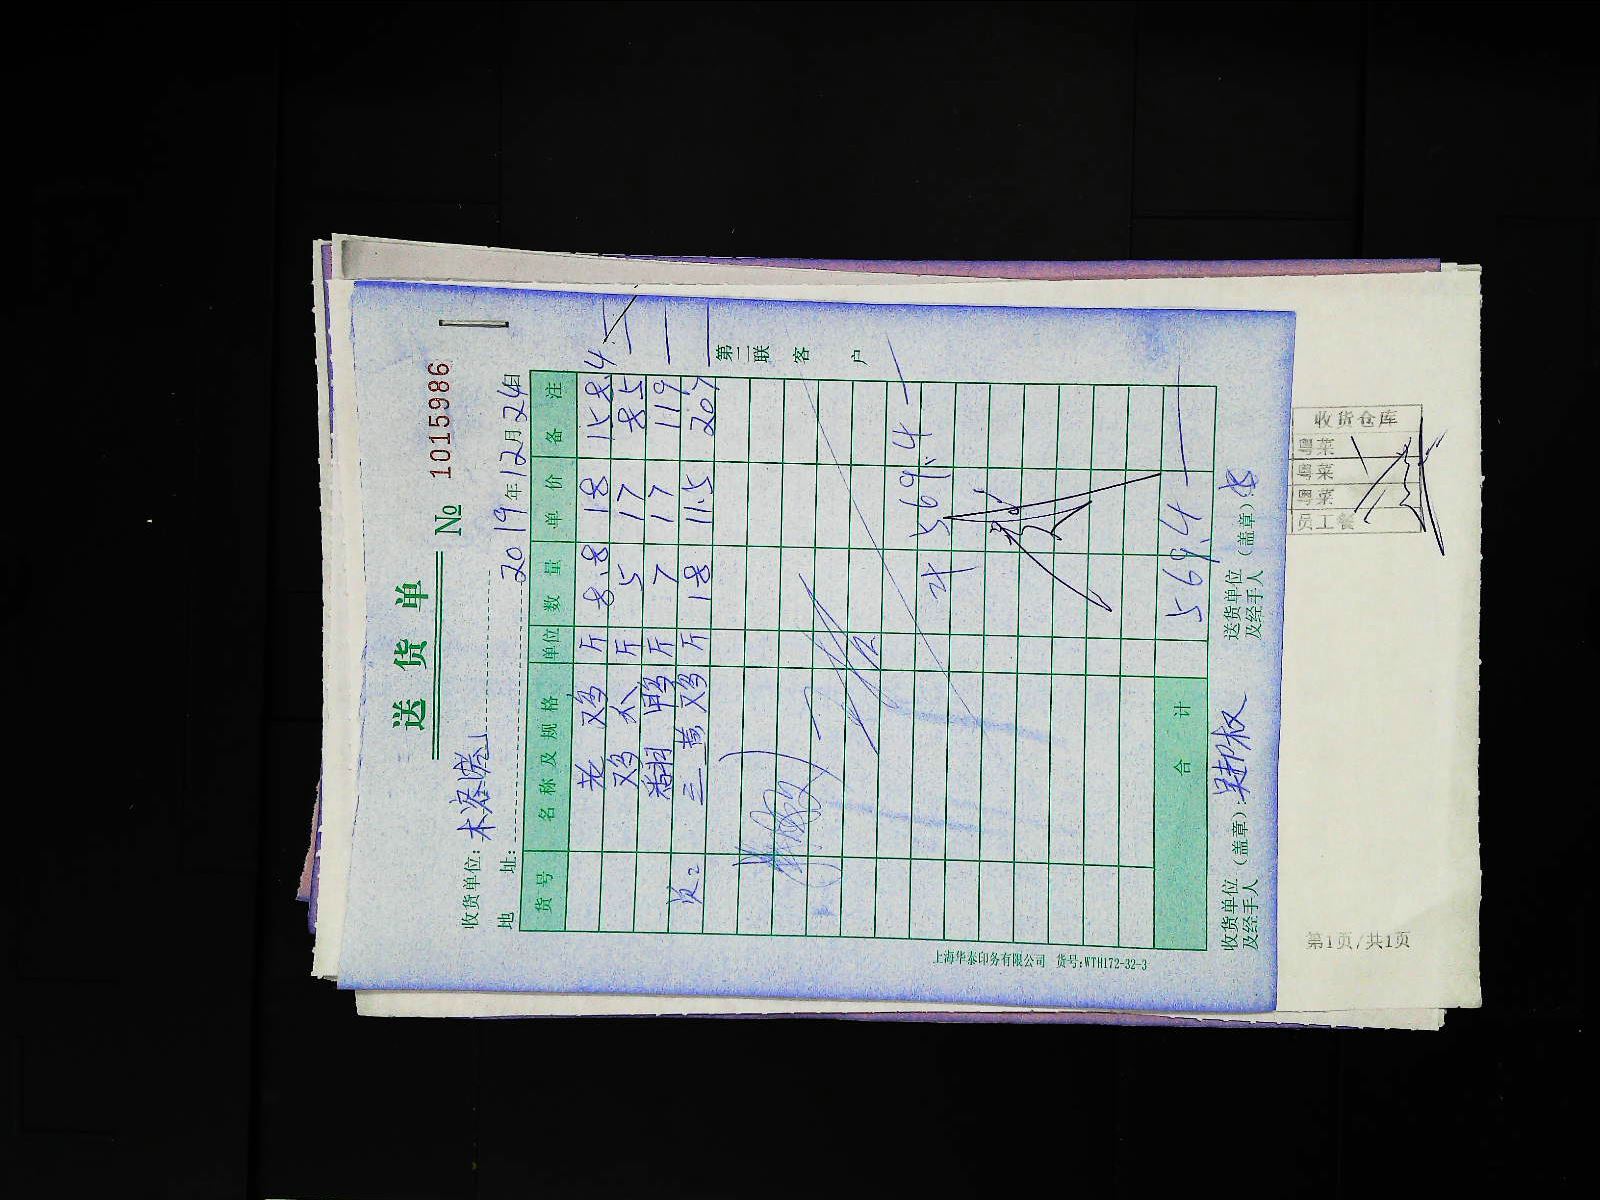 送货单
№ 1015986
收货单位：木
地　址：
2019年12月24日
货号 名称及规格 单位 数量 单价 备注
老鸡 斤 8.8 18 158.4
鸡大 斤 5 17 85
翻鸭 斤 7 17 119
三黄鸡 斤 18 11.5 207
计 569.4
合计 569.4
收货单位（盖章）：
及经手人
送货单位（盖章）
及经手人
第二联 客户
上海华泰印务有限公司 货号:WTH172-32-3
收货仓库
粤菜
粤菜
粤菜
员工餐
第1页/共1页